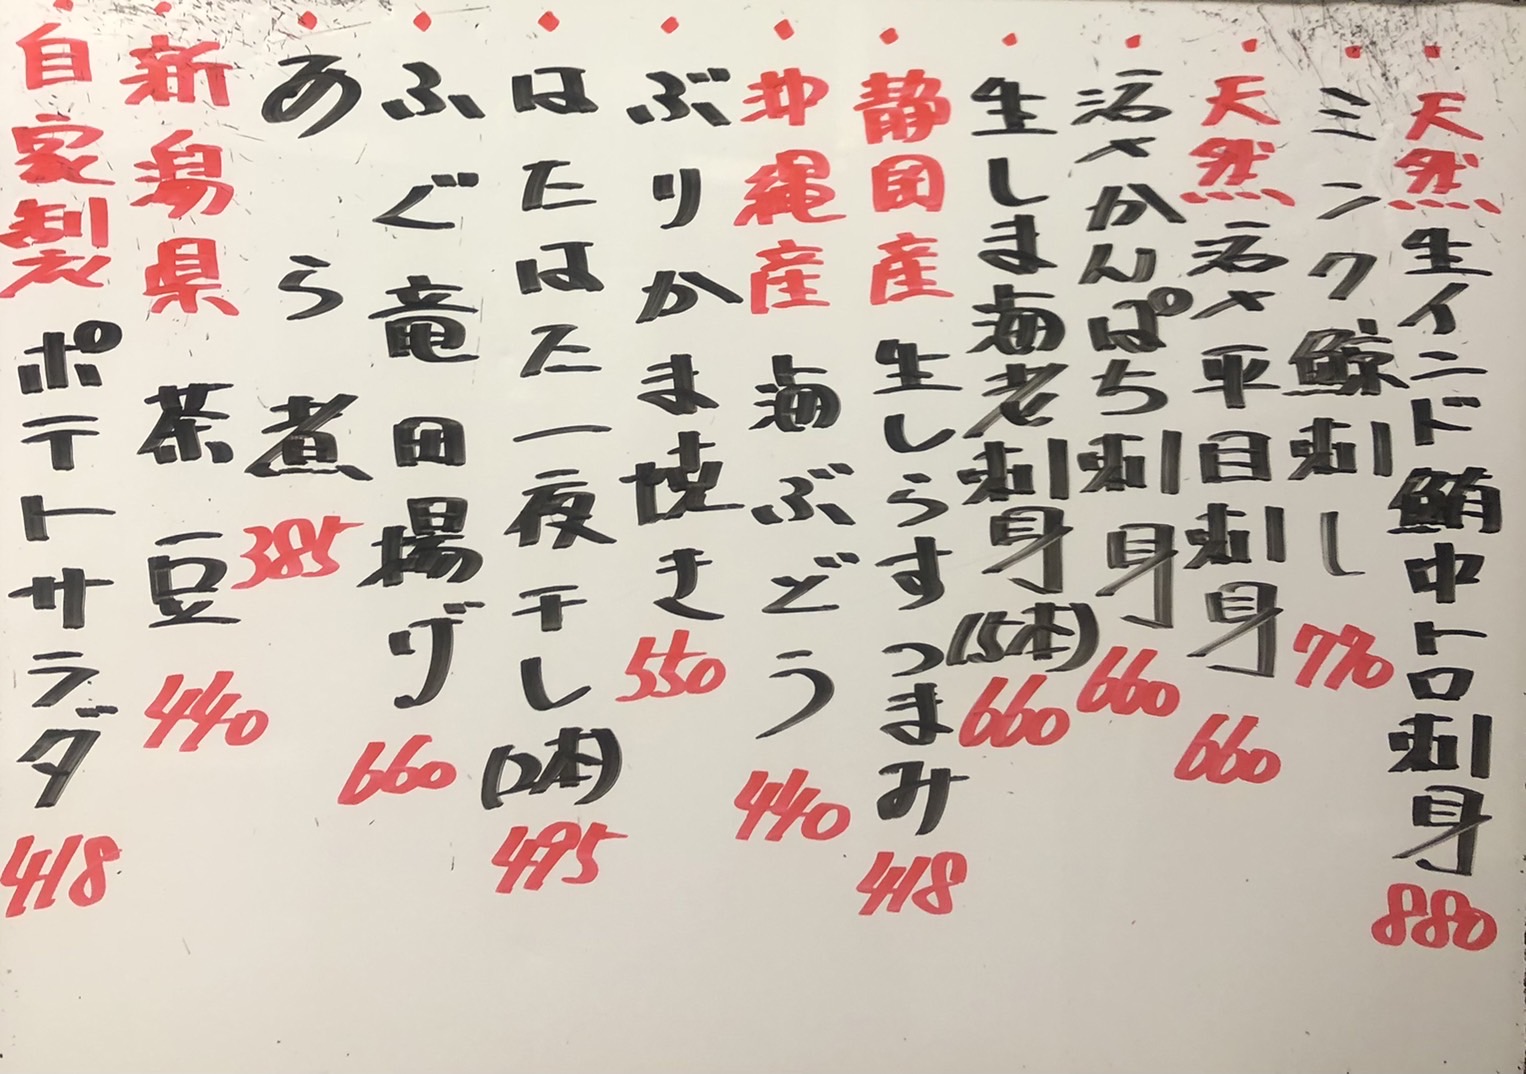 天然生インド鮪中トロ刺身 880
ミンク鯨刺し 770
天然活〆平目刺身 660
活〆かんぱち刺身 660
生しま海老刺身(5本) 660
静岡産 生しらすつまみ 418
沖縄産 海ぶどう 440
ぶりかま焼き 550
はたはた一夜干し(2本) 495
ふぐ竜田揚げ 660
あら煮 385
新潟県 茶豆 440
自家製ポテトサラダ 418